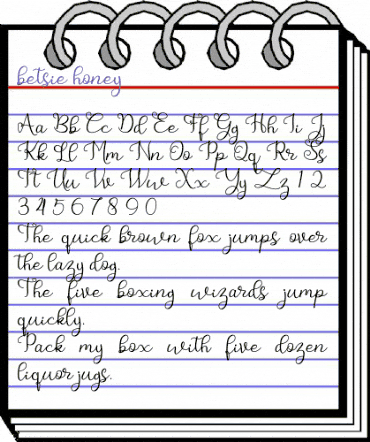 betsie honey
Aa Bb Cc Dd Ee Ff Gg Hh Ii Jj
Kk Ll Mm Nn Oo Pp Qq Rr Ss
Tt Uu Vv Ww Xx Yy Zz 1 2
3 4 5 6 7 8 9 0
The quick brown fox jumps over
the lazy dog.
The five boxing wizards jump
quickly.
Pack my box with five dozen
liquor jugs.